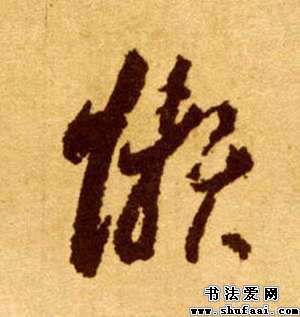 懶
书法爱网
www.shufaai.com